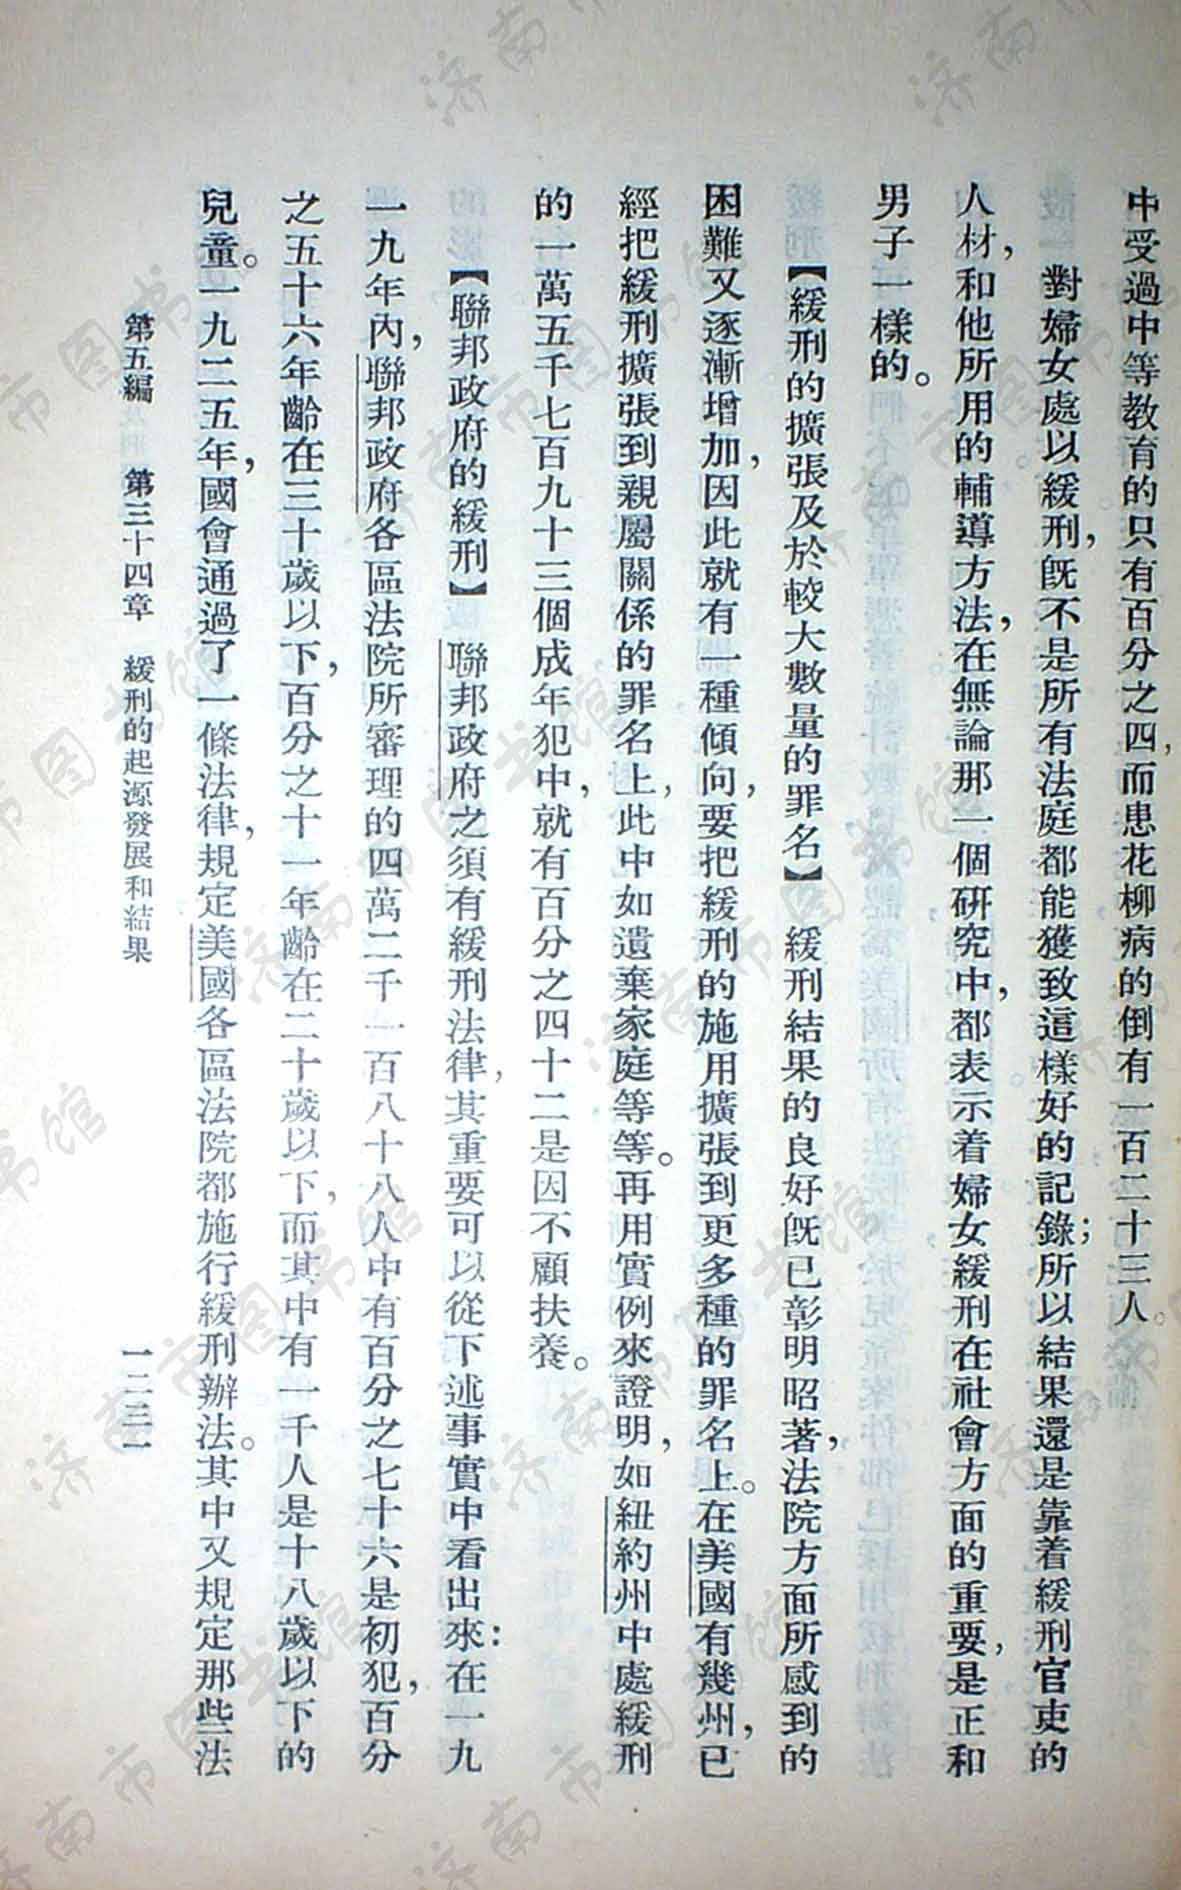 中受過中等教育的只有百分之四，而患花柳病的倒有一百二十三人。
對婦女處以緩刑，旣不是所有法庭都能獲致這樣好的記錄；所以結果還是靠着緩刑官吏的
人材，和他所用的輔導方法，在無論那一個研究中，都表示着婦女緩刑在社會方面的重要，是正和
男子一樣的。
【緩刑的擴張及於較大數量的罪名】緩刑結果的良好旣已彰明昭著，法院方面所感到的
困難又逐漸增加，因此就有一種傾向，要把緩刑的施用擴張到更多種的罪名上。在美國有幾州，已
經把緩刑擴張到親屬關係的罪名上，此中如遺棄家庭等等。再用實例來證明，如紐約州中處緩刑
的一萬五千七百九十三個成年犯中，就有百分之四十二是因不顧扶養。
【聯邦政府的緩刑】聯邦政府之須有緩刑法律，其重要可以從下述事實中看出來：在一九
一九年內，聯邦政府各區法院所審理的四萬二千一百八十八人中有百分之七十六是初犯，百分
之五十六年齡在三十歲以下，百分之十一年齡在二十歲以下，而其中有一千人是十八歲以下的
兒童。一九二五年，國會通過了一條法律，規定美國各區法院都施行緩刑辦法。其中又規定那些法
第五編　第三十四章　緩刑的起源發展和結果　一二三一
济南市图书馆